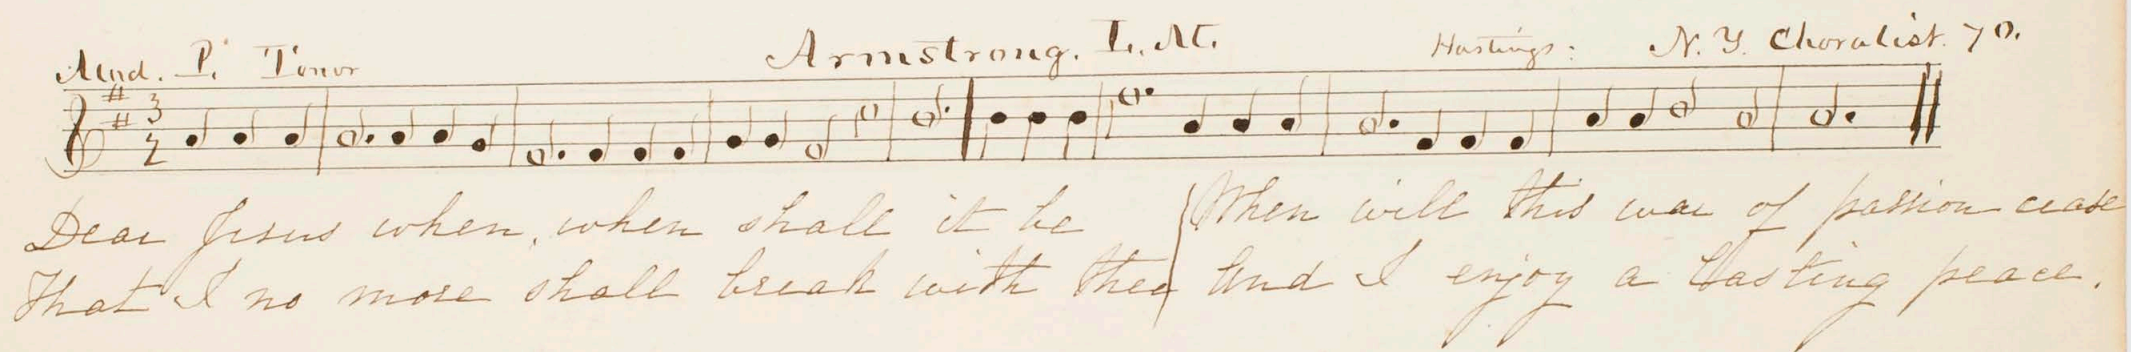 Mnd. P. Tenor Armstrong. L. M. Hastings. N. Y. Choralist. 70.
3
2
Dear Jesus when, when shall it be
That I no more shall break with thee
When will this war of passion cease
And I enjoy a lasting peace.